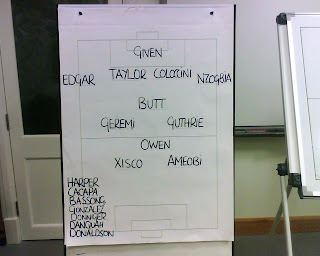 GIVEN
EDGAR TAYLOR COLOCINI NZOGBIA
BUTT
GEREMI GUTHRIE
OWEN
XISCO AMEOBI
HARPER
CACAPA
BASSONG
GONZALEZ
DONINGER
DANQUAH
DONALDSON